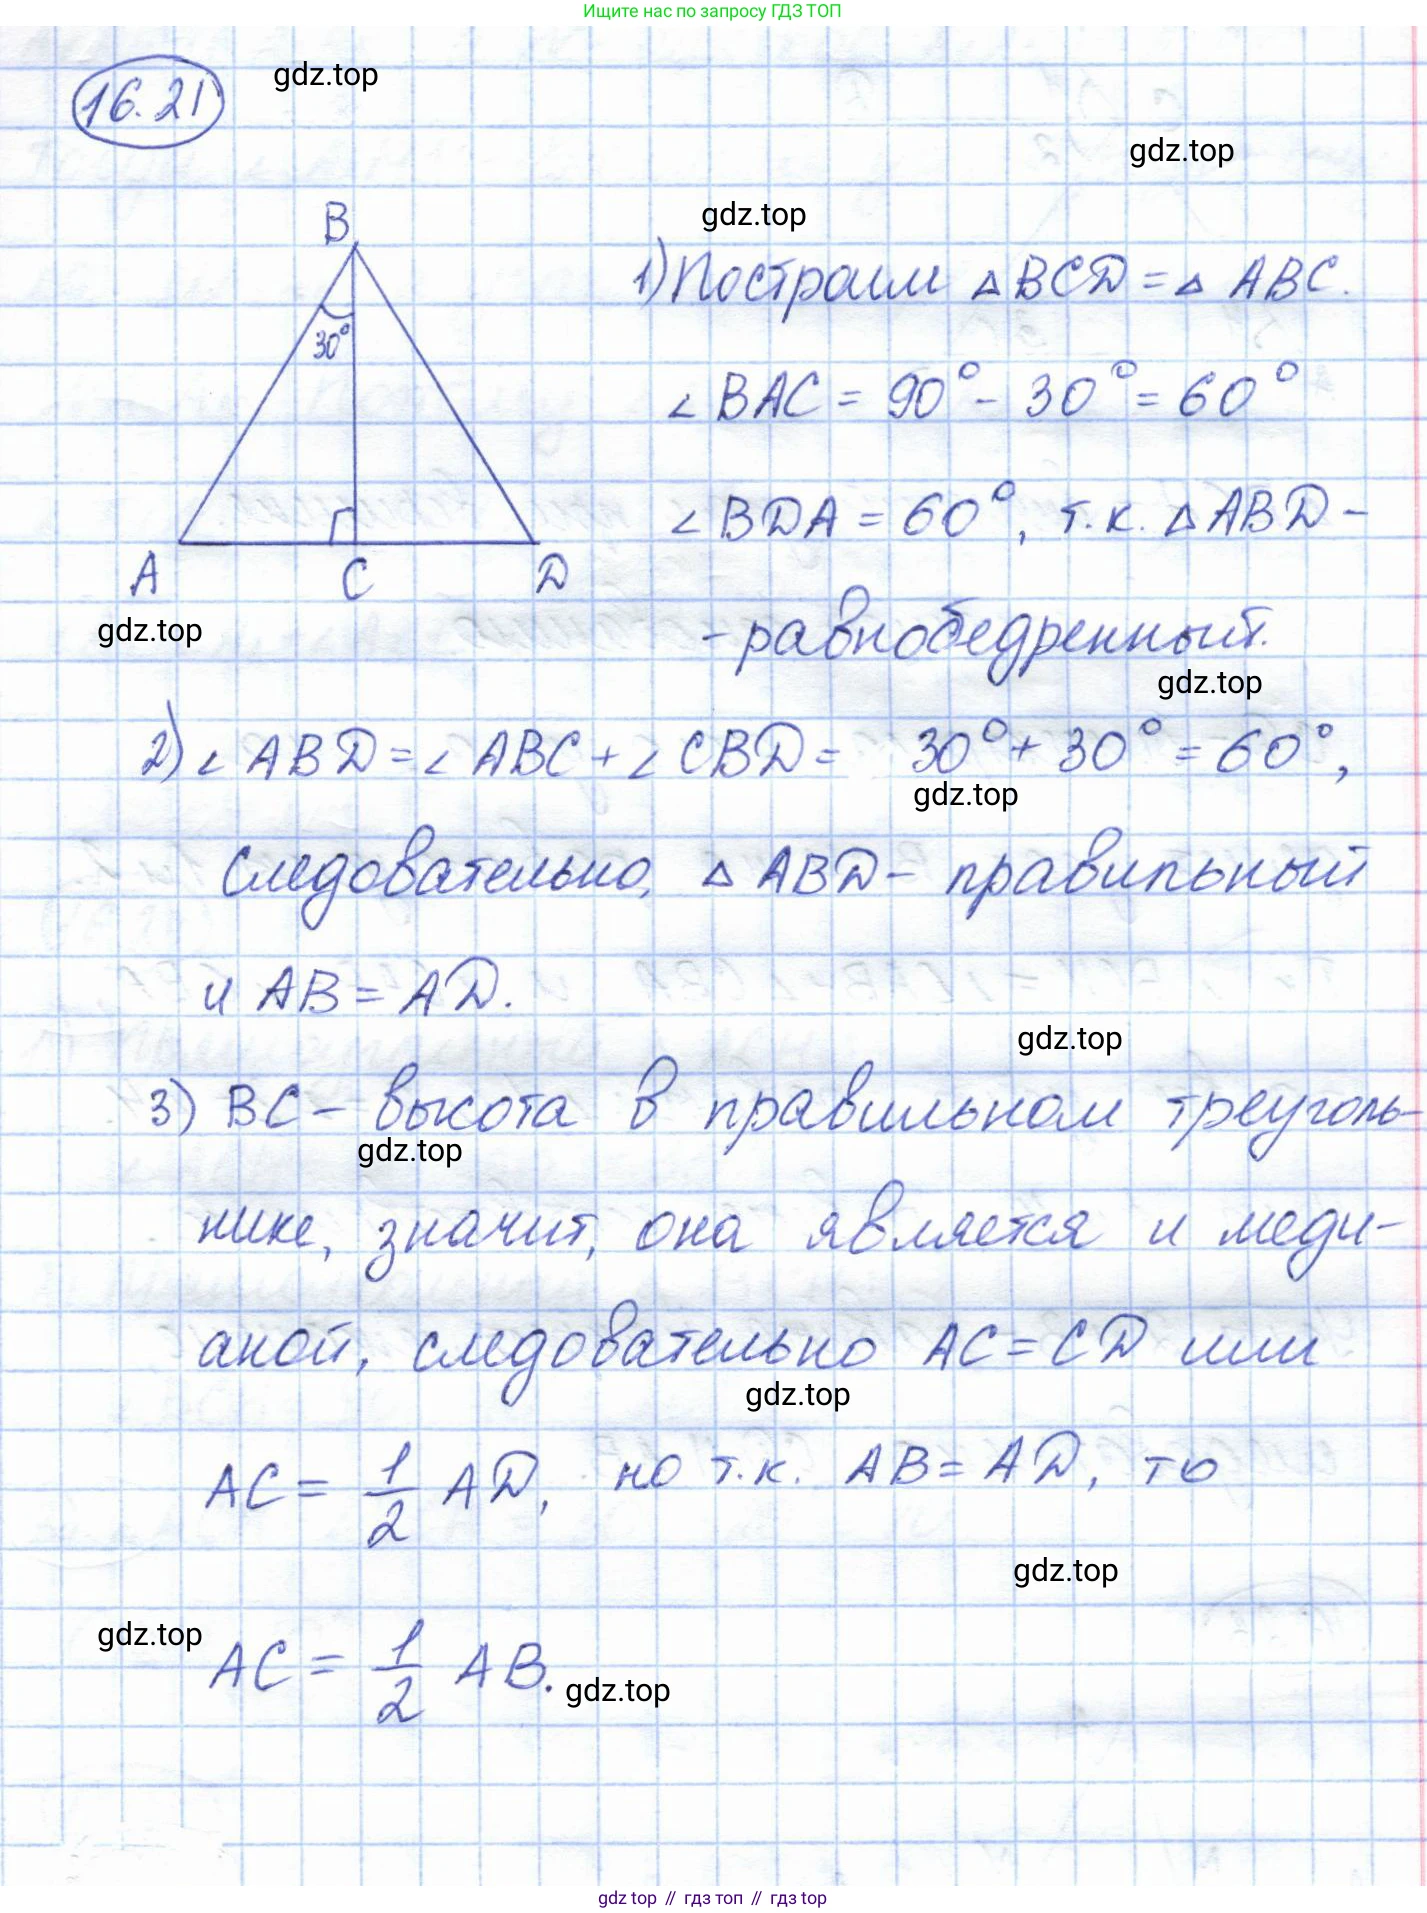 Ищите нас по запросу ГДЗ ТОП
16.21
gdz.top
gdz.top
gdz.top
B
30°
A
C
D
gdz.top
1) Построим △ BCD = △ ABC.
∠ BAC = 90° - 30° = 60°
∠ BDA = 60°, т.к. △ ABD -
- равнобедренный.
gdz.top
2) ∠ ABD = ∠ ABC + ∠ CBD = 30° + 30° = 60°,
gdz.top
следовательно, △ ABD - правильный
и AB = AD.
gdz.top
3) BC - высота в правильном треуголь-
gdz.top
нике, значит, она является и меди-
аной, следовательно AC = CD или
gdz.top
AC = 1/2 AD, но т.к. AB = AD, то
gdz.top
gdz.top
AC = 1/2 AB.
gdz.top
gdz top // гдз топ // гдз top